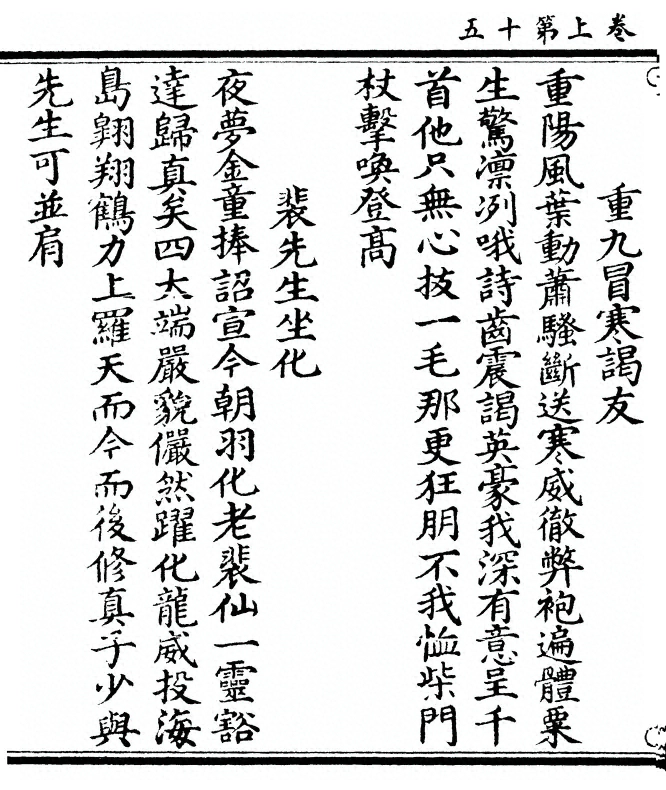 卷上第十五
重九冒寒謁友
重陽風葉動蕭騷斷送寒威徹弊袍遍體粟
生驚凛冽哦詩齒震謁英豪我深有意呈千
首他只無心技一毛那更狂朋不我恤柴門
杖擊喚登高
裴先生坐化
夜夢金童捧詔宣今朝羽化老裴仙一靈豁
達歸真矣四大端嚴貌儼然躍化龍威投海
島翺翔鶴力上羅天而今而後修真子少與
先生可並肩